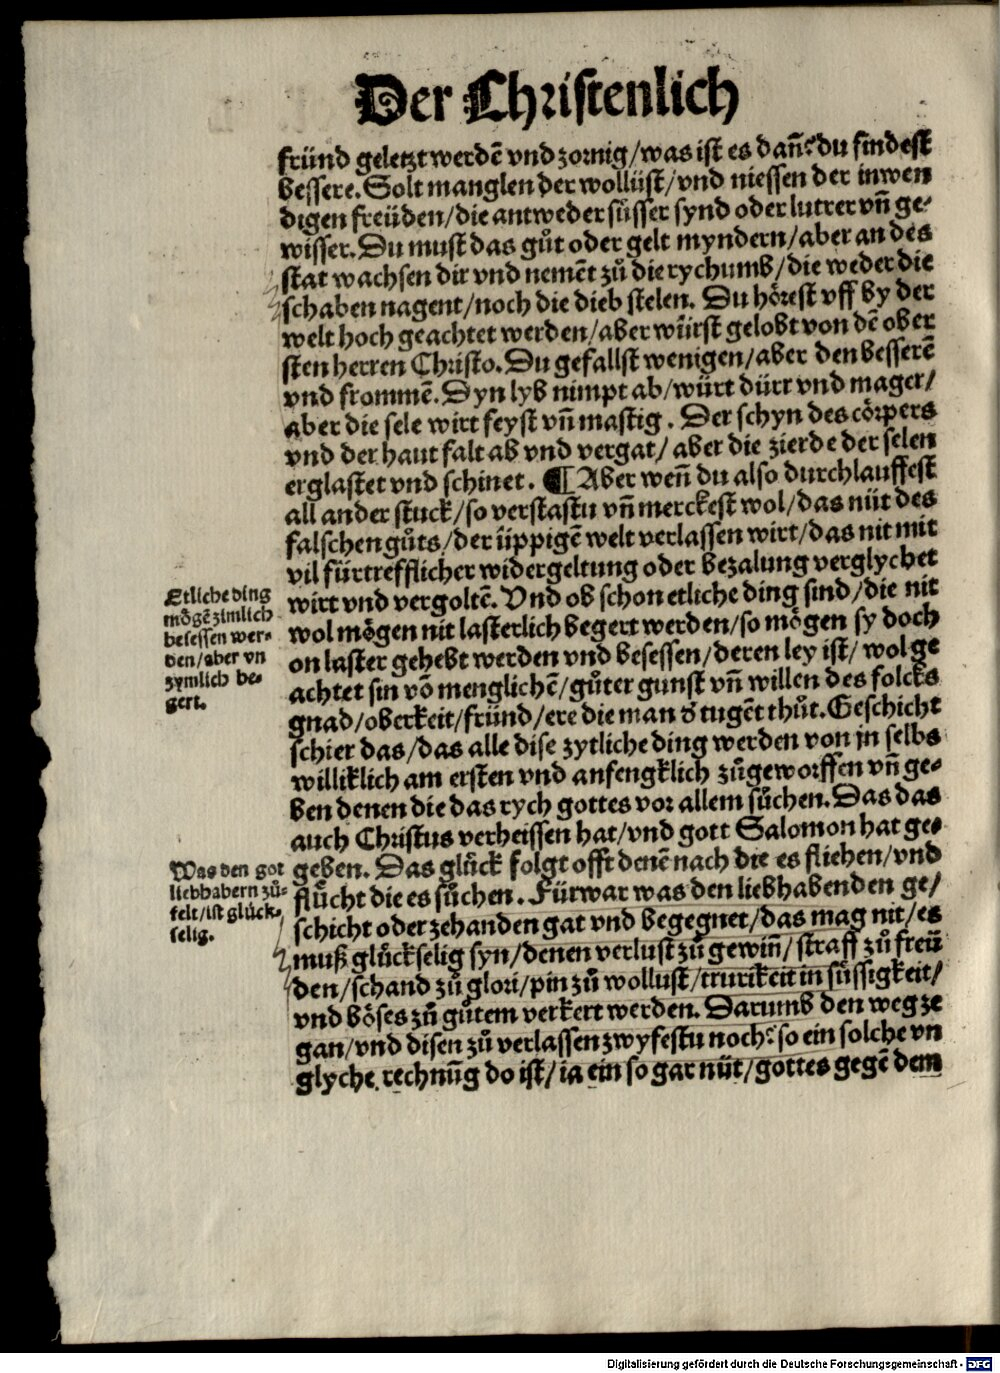 Der Christenlich
fründ geletzt werdē vnd zornig/was ist es dañ? du findest
bessere. Solt manglen der wollüst/vnd niessen der inwen
digen freüden/die antweder süsser synd oder lutrer vñ ge-
wisser. Du must das gůt oder gelt myndern/aber an des
stat wachsen dir vnd nemēt zů die rychumb/die weder die
schaben nagent/noch die dieb stelen. Du hörest vff by der
welt hoch geachtet werden/aber würst gelobt von dē ober
sten herren Christo. Du gefallst wenigen/aber den besserē
vnd frommē. Dyn lyb nimpt ab/würt dürr vnd mager/
aber die sele wirt feyst vñ mastig. Der schyn des cörpers
vnd der haut falt ab vnd vergat/ aber die zierde der selen
erglastet vnd schinet. ¶ Aber weñ du also durchlauffest
all ander stuck/so verstastu vñ merckest wol/das nüt des
falschen gůts/der üppigē welt verlassen wirt/das nit mit
vil fürtrefflicher widergeltung oder bezalung verglychet
wirt vnd vergoltē. Vnd ob schon etliche ding sind/die nit
wol mögen nit lasterlich begert werden/so mögen sy doch
on laster gehebt werden vnd besessen/deren ley ist/ wol ge
achtet sin vō menglichē/gůter gunst vñ willen des folcks
gnad/oberkeit/fründ/ere die man d' tugēt thůt. Geschicht
schier das/das alle dise zytliche ding werden von jn selbs
williklich am ersten vnd anfengklich zůgeworffen vñ ge-
ben denen die das rych gottes vor allem sůchen. Das das
auch Christus verheissen hat/vnd gott Salomon hat ge-
geben. Das glück folgt offt denē nach die es fliehen/vnd
flücht die es sůchen. Fürwar was den liebhabenden ge/
schicht oder zehanden gat vnd begegnet/das mag nit/es
muß glückselig syn/denen verlust zů gewiñ/ straff zů freü
den/schand zů glori/pin zů wollust/trurikeit in süssigkeit/
vnd böses zů gůtem verkert werden. Darumb den weg ze
gan/vnd disen zů verlassen zwyfestu noch? so ein solche vn
glyche rechnūg do ist/ ia ein so gar nüt/gottes gegē dem
Etliche ding
mögē zimlich
besessen wer-
den/aber vn
zymlich be-
gert.
Was den got
liebhabern zů-
felt/ist glück-
selig.
Digitalisierung gefördert durch die Deutsche Forschungsgemeinschaft - DFG